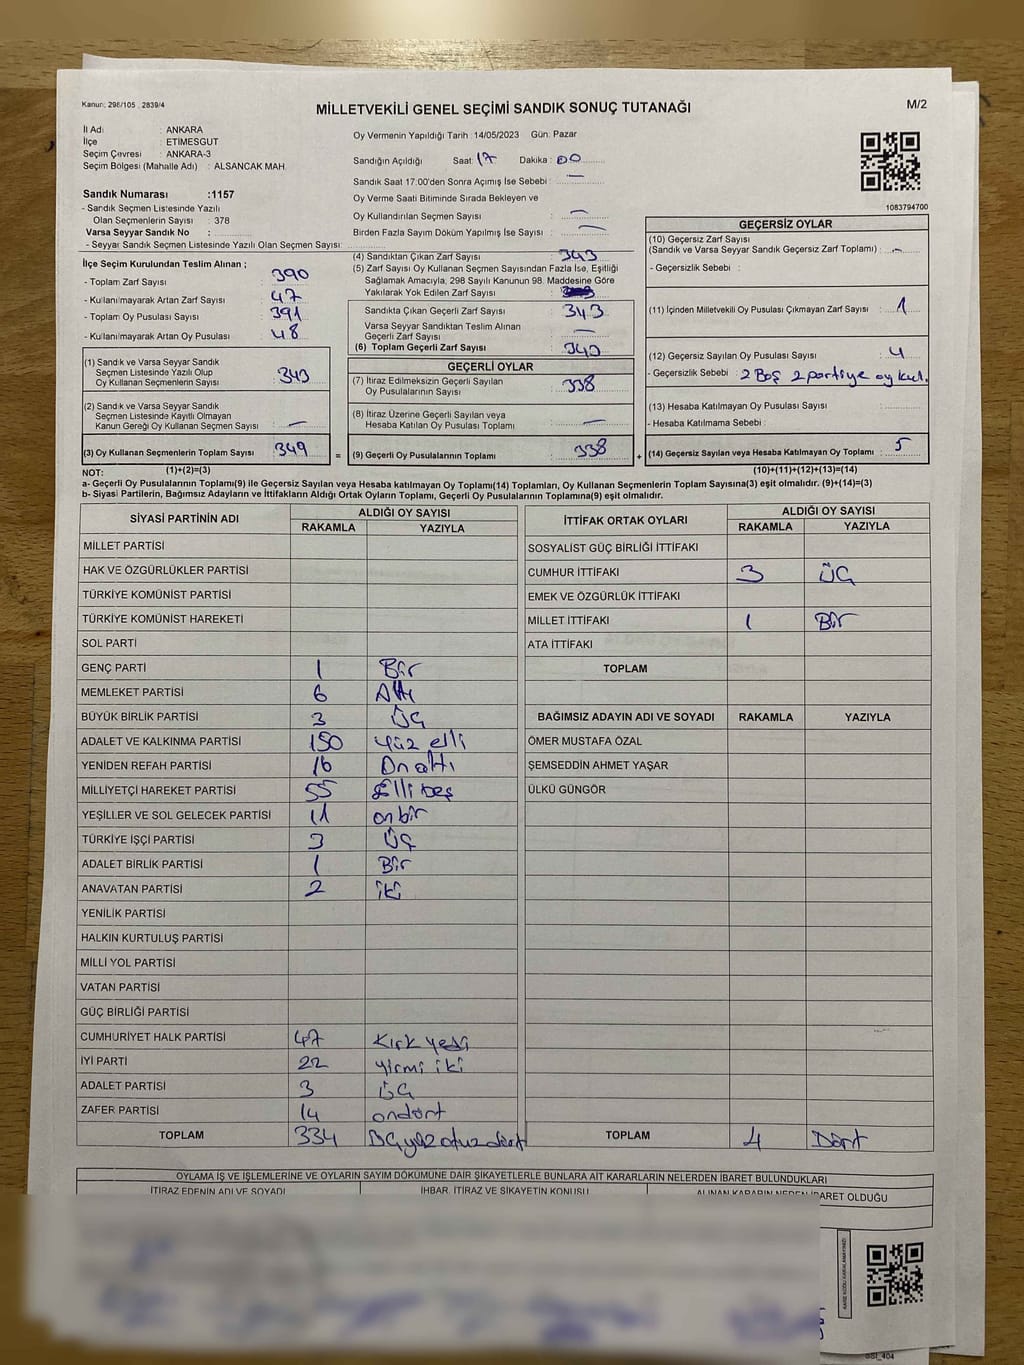 Kanun: 298/105 , 2839/4
MİLLETVEKİLİ GENEL SEÇİMİ SANDIK SONUÇ TUTANAĞI
M/2
İl Adı : ANKARA
İlçe : ETİMESGUT
Seçim Çevresi : ANKARA-3
Seçim Bölgesi (Mahalle Adı) : ALSANCAK MAH.
Oy Vermenin Yapıldığı Tarih : 14/05/2023 Gün: Pazar
Sandığın Açıldığı Saat: 17 Dakika : 00
Sandık Saat 17:00'den Sonra Açımış İse Sebebi : —
Oy Verme Saati Bitiminde Sırada Bekleyen ve
Oy Kullandırılan Seçmen Sayısı : —
Birden Fazla Sayım Döküm Yapılmış İse Sayısı : —
1083794700
Sandık Numarası :1157
- Sandık Seçmen Listesinde Yazılı
Olan Seçmenlerin Sayısı : 378
Varsa Seyyar Sandık No :
- Seyyar Sandık Seçmen Listesinde Yazılı Olan Seçmen Sayısı:
İlçe Seçim Kurulundan Teslim Alınan ;
- Toplam Zarf Sayısı : 390
- Kullanılmayarak Artan Zarf Sayısı : 47
- Toplam Oy Pusulası Sayısı : 391
- Kullanılmayarak Artan Oy Pusulası : 48
(1) Sandık ve Varsa Seyyar Sandık
Seçmen Listesinde Yazılı Olup
Oy Kullanan Seçmenlerin Sayısı : 343
(2) Sandık ve Varsa Seyyar Sandık
Seçmen Listesinde Kayıtlı Olmayan
Kanun Gereği Oy Kullanan Seçmen Sayısı : —
(3) Oy Kullanan Seçmenlerin Toplam Sayısı : 349
(4) Sandıktan Çıkan Zarf Sayısı : 343
(5) Zarf Sayısı Oy Kullanan Seçmen Sayısından Fazla İse, Eşitliği
Sağlamak Amacıyla, 298 Sayılı Kanunun 98. Maddesine Göre
Yakılarak Yok Edilen Zarf Sayısı :
Sandıkta Çıkan Geçerli Zarf Sayısı : 343
Varsa Seyyar Sandıktan Teslim Alınan
Geçerli Zarf Sayısı : —
(6) Toplam Geçerli Zarf Sayısı : 343
GEÇERLİ OYLAR
(7) İtiraz Edilmeksizin Geçerli Sayılan
Oy Pusulalarının Sayısı : 338
(8) İtiraz Üzerine Geçerli Sayılan veya
Hesaba Katılan Oy Pusulası Toplamı : —
= (9) Geçerli Oy Pusulalarının Toplamı : 338 +
GEÇERSİZ OYLAR
(10) Geçersiz Zarf Sayısı
(Sandık ve Varsa Seyyar Sandık Geçersiz Zarf Toplamı) : —
- Geçersizlik Sebebi :
(11) İçinden Milletvekili Oy Pusulası Çıkmayan Zarf Sayısı : 1
(12) Geçersiz Sayılan Oy Pusulası Sayısı : 4
- Geçersizlik Sebebi : 2 Boş 2 partiye oy kul.
(13) Hesaba Katılmayan Oy Pusulası Sayısı :
- Hesaba Katılmama Sebebi :
(14) Geçersiz Sayılan veya Hesaba Katılmayan Oy Toplamı : 5
NOT: (1)+(2)=(3) (10)+(11)+(12)+(13)=(14)
a- Geçerli Oy Pusulalarının Toplamı(9) ile Geçersiz Sayılan veya Hesaba katılmayan Oy Toplamı(14) Toplamları, Oy Kullanan Seçmenlerin Toplam Sayısına(3) eşit olmalıdır. (9)+(14)=(3)
b- Siyasi Partilerin, Bağımsız Adayların ve İttifakların Aldığı Ortak Oyların Toplamı, Geçerli Oy Pusulalarının Toplamına(9) eşit olmalıdır.
SİYASİ PARTİNİN ADI ALDIĞI OY SAYISI
RAKAMLA YAZIYLA
MİLLET PARTİSİ
HAK VE ÖZGÜRLÜKLER PARTİSİ
TÜRKİYE KOMÜNİST PARTİSİ
TÜRKİYE KOMÜNİST HAREKETİ
SOL PARTİ
GENÇ PARTİ 1 Bir
MEMLEKET PARTİSİ 6 Altı
BÜYÜK BİRLİK PARTİSİ 3 Üç
ADALET VE KALKINMA PARTİSİ 150 Yüz elli
YENİDEN REFAH PARTİSİ 16 Onaltı
MİLLİYETÇİ HAREKET PARTİSİ 55 Elli beş
YEŞİLLER VE SOL GELECEK PARTİSİ 11 onbir
TÜRKİYE İŞÇİ PARTİSİ 3 Üç
ADALET BİRLİK PARTİSİ 1 Bir
ANAVATAN PARTİSİ 2 iki
YENİLİK PARTİSİ
HALKIN KURTULUŞ PARTİSİ
MİLLİ YOL PARTİSİ
VATAN PARTİSİ
GÜÇ BİRLİĞİ PARTİSİ
CUMHURİYET HALK PARTİSİ 47 Kırk yedi
İYİ PARTİ 22 yirmi iki
ADALET PARTİSİ 3 üç
ZAFER PARTİSİ 14 ondört
TOPLAM 334 Üçyüzotuzdört
İTTİFAK ORTAK OYLARI ALDIĞI OY SAYISI
RAKAMLA YAZIYLA
SOSYALİST GÜÇ BİRLİĞİ İTTİFAKI
CUMHUR İTTİFAKI 3 Üç
EMEK VE ÖZGÜRLÜK İTTİFAKI
MİLLET İTTİFAKI 1 Bir
ATA İTTİFAKI
TOPLAM
BAĞIMSIZ ADAYIN ADI VE SOYADI RAKAMLA YAZIYLA
ÖMER MUSTAFA ÖZAL
ŞEMSEDDİN AHMET YAŞAR
ÜLKÜ GÜNGÖR
TOPLAM 4 Dört
OYLAMA İŞ VE İŞLEMLERİNE VE OYLARIN SAYIM DÖKÜMÜNE DAİR ŞİKAYETLERLE BUNLARA AİT KARARLARIN NELERDEN İBARET BULUNDUKLARI
İTİRAZ EDENİN ADI VE SOYADI İHBAR, İTİRAZ VE ŞİKAYETİN KONUSU ALINAN KARARIN NEDEN İBARET OLDUĞU